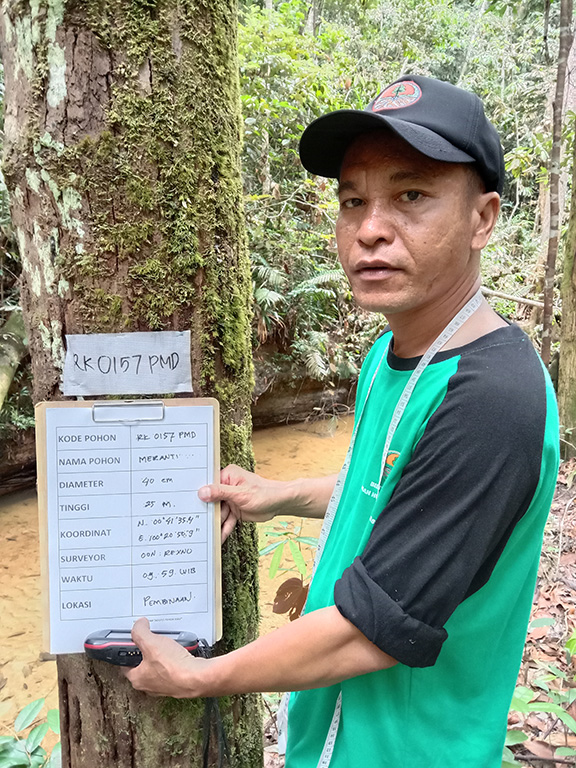 RK 0157 PMD
KODE POHON RK 0157 PMD
NAMA POHON MERANTI
DIAMETER 40 cm
TINGGI 25 M.
KOORDINAT N. 00°41'35.4"
E. 100°20'56.9"
SURVEYOR DON. REYNO
WAKTU 09.59.WIB
LOKASI PEMBINAAN